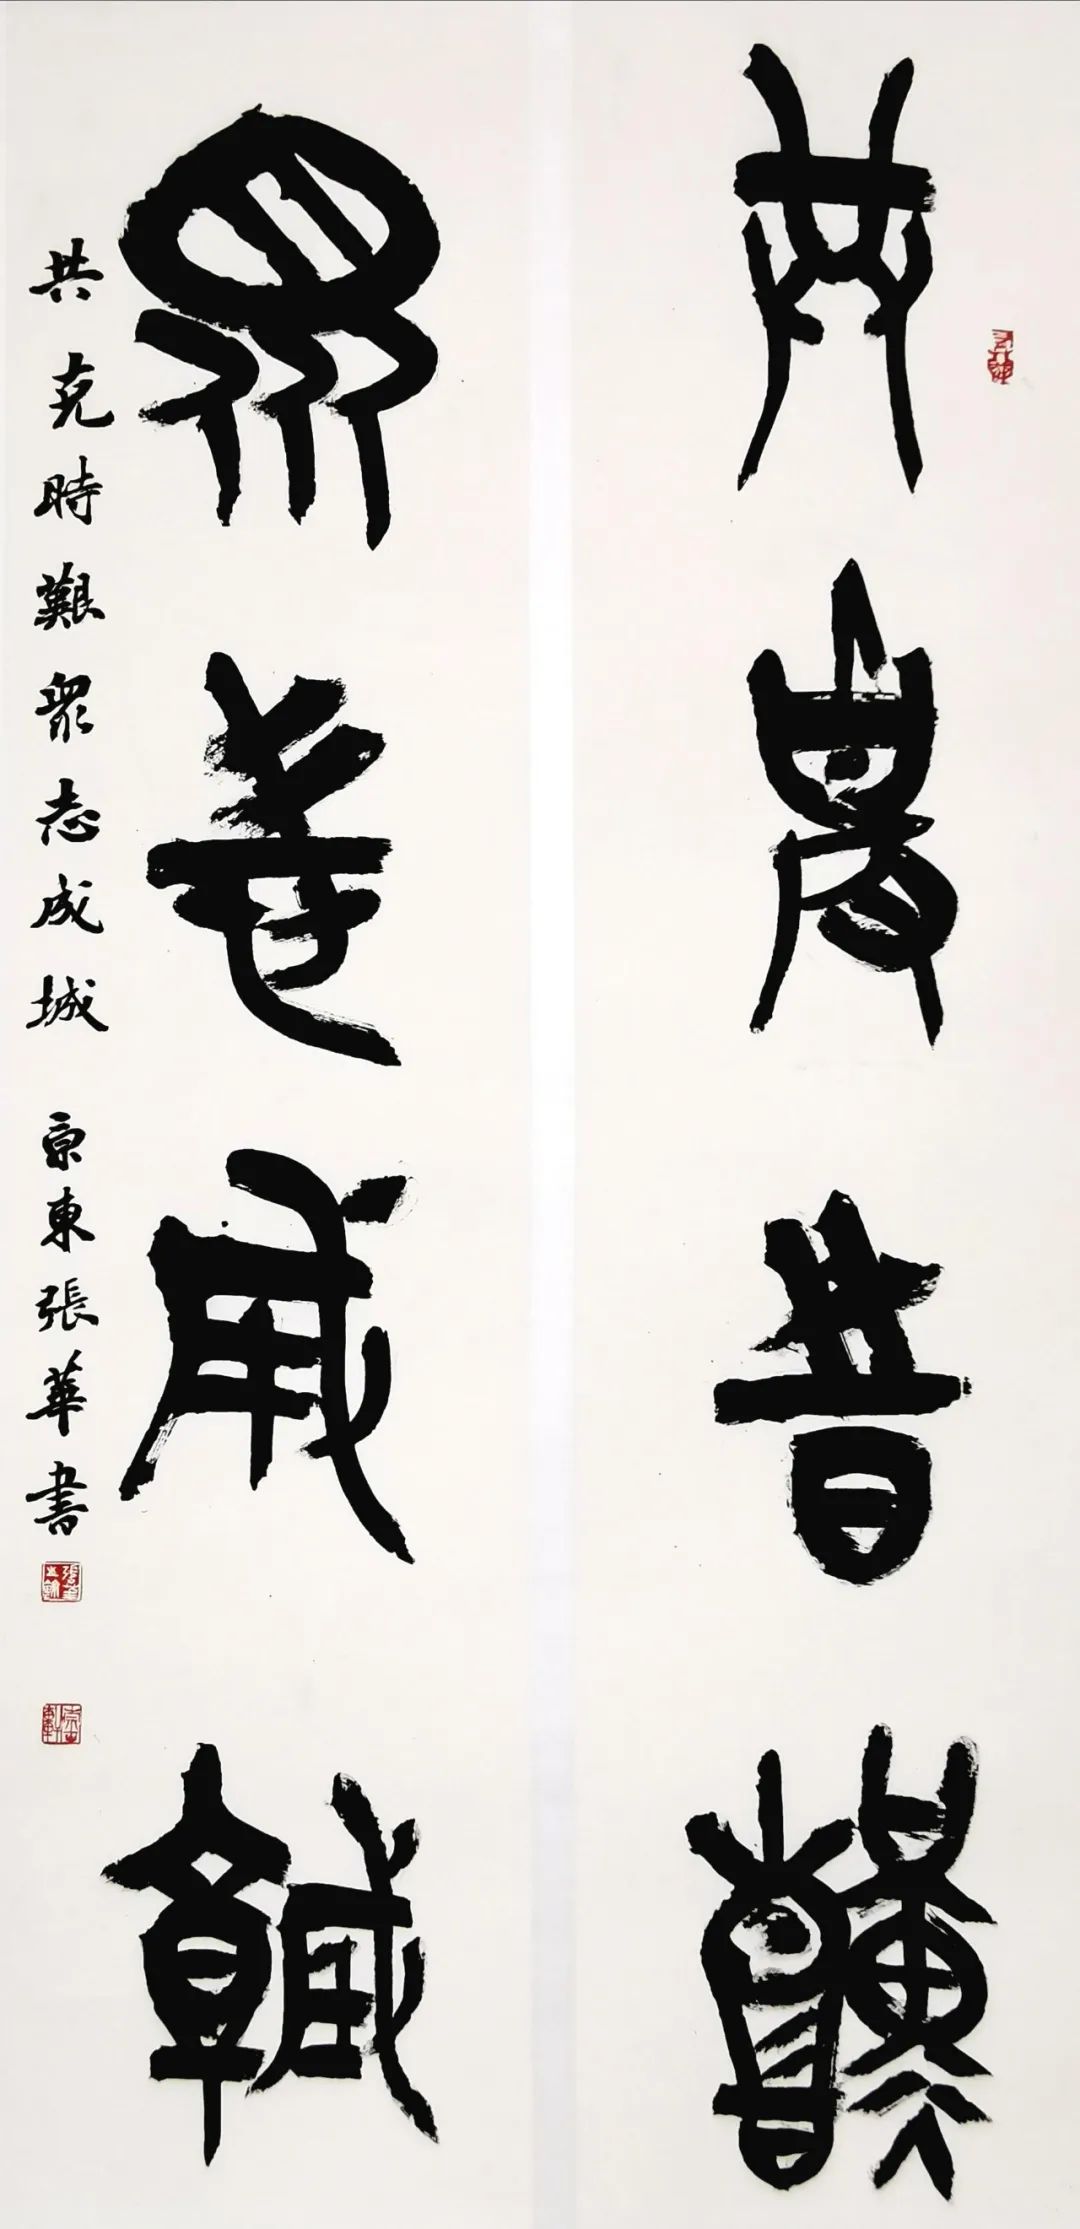 共克時艱
眾志成城
共克時艱眾志成城 京東張華書